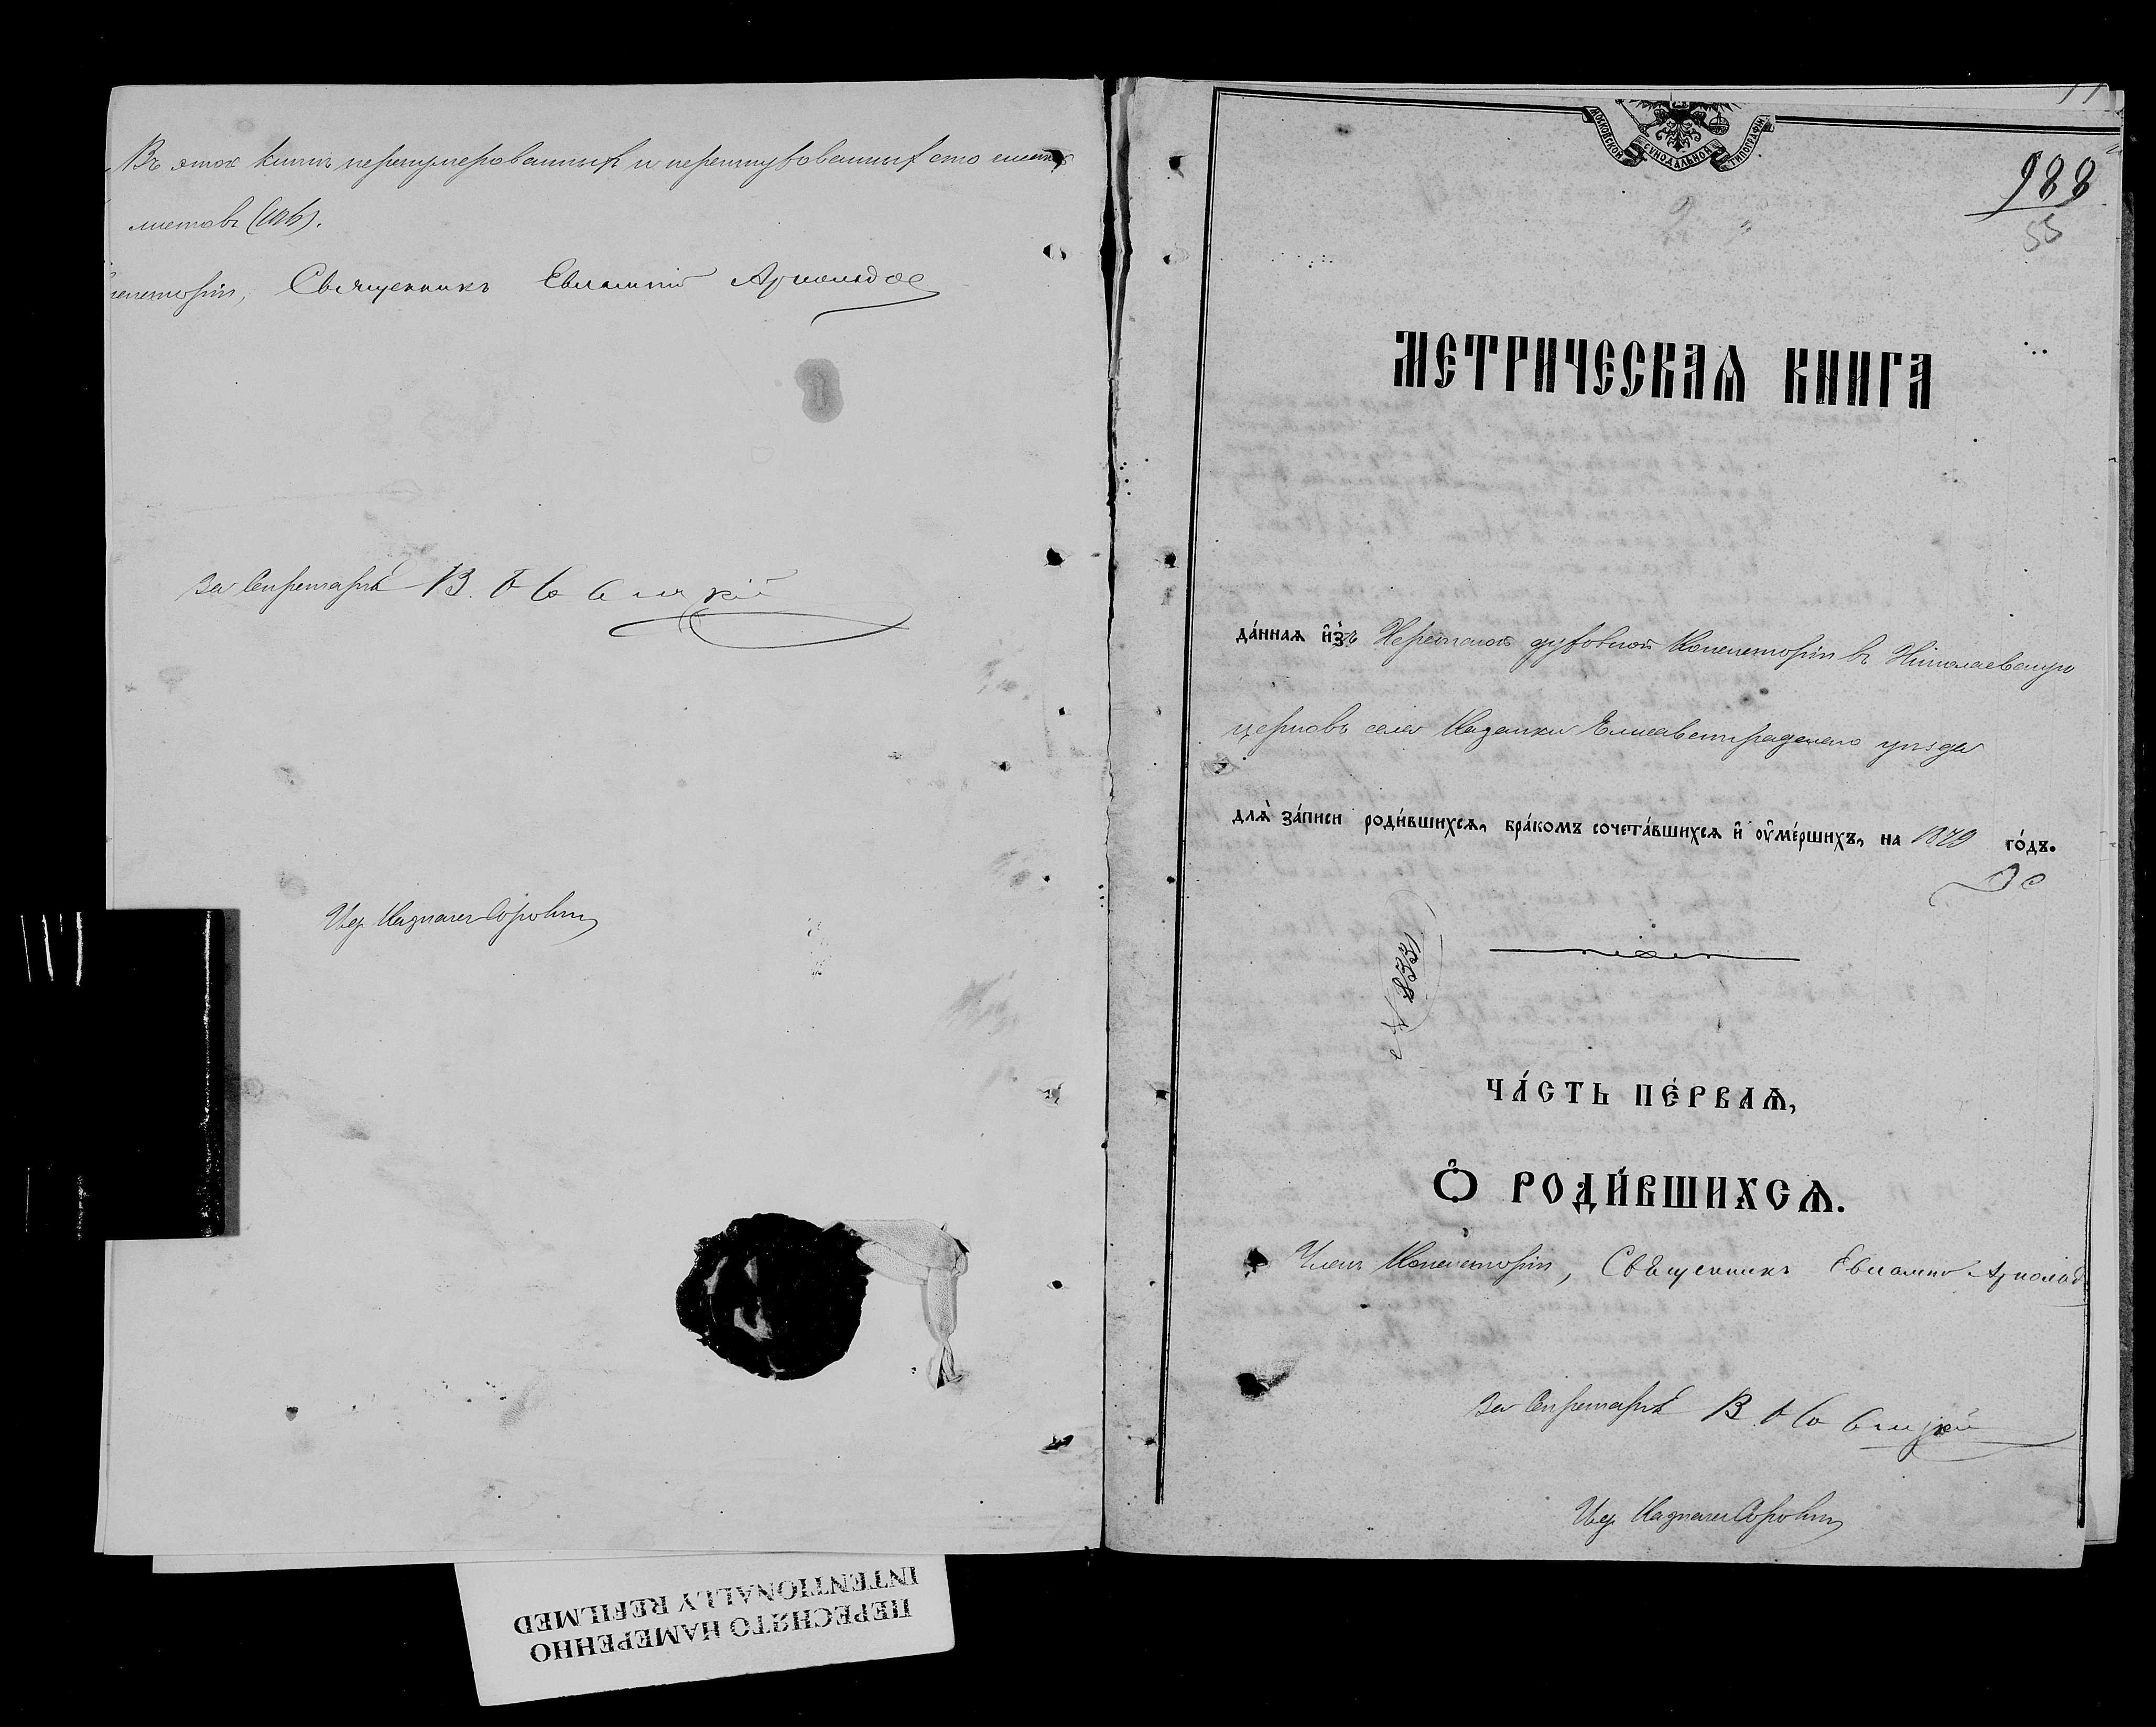 Въ этой книгѣ перенумерованныхъ и перешнурованныхъ сто шесть
листовъ (106).
Консисторіи, Священникъ Евлампій Арнольдов
За Секретаря В.
Исд. Казначея
МОСКОВСКОЙ СѴНОДАЛЬНОЙ ТИПОГРАФІИ
988
55
МЕТРИЧЕСКАѦ КНИГА
да́ннаѧ и҆зъ Херсонской духовной Консисторіи въ Николаевскую
церковь села Казанки Елисаветградскаго уѣзда
длѧ̀ за́писи роди́вшихсѧ, бра́комъ сочета́вшихсѧ и҆ ᲂу҆ме́ршихъ, на 1879 го́дъ.
№ 833
ЧА́СТЬ ПЕ́РВАѦ,
Ѽ РОДИ́ВШИХСѦ.
Членъ Консисторіи, Священникъ Евлампій Арнольд
За Секретаря В.
Исд. Казначея
ПЕРЕСНЯТО НАМЕРЕННО
INTENTIONALLY REFILMED